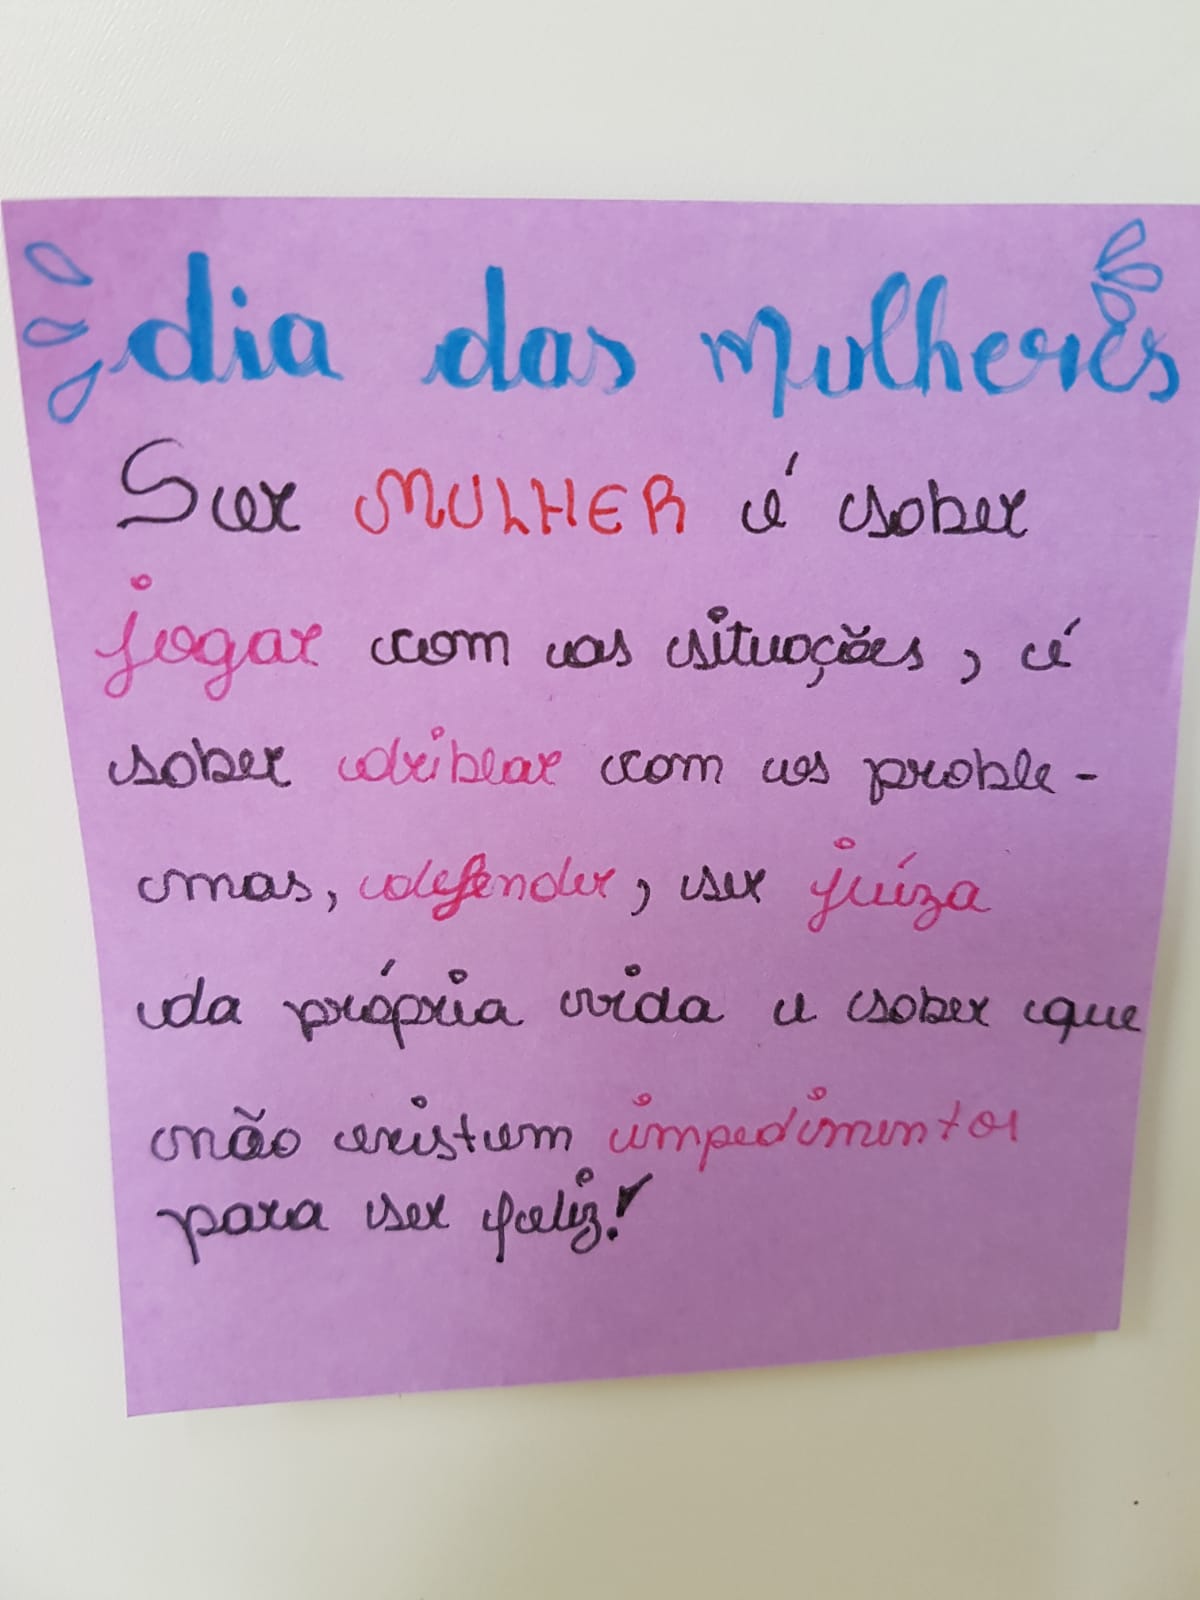 dia das mulheres
Ser MULHER é saber
jogar com as situações, é
saber driblar com os proble-
mas, defender, ser juíza
da própria vida e saber que
não existem impedimentos
para ser feliz!